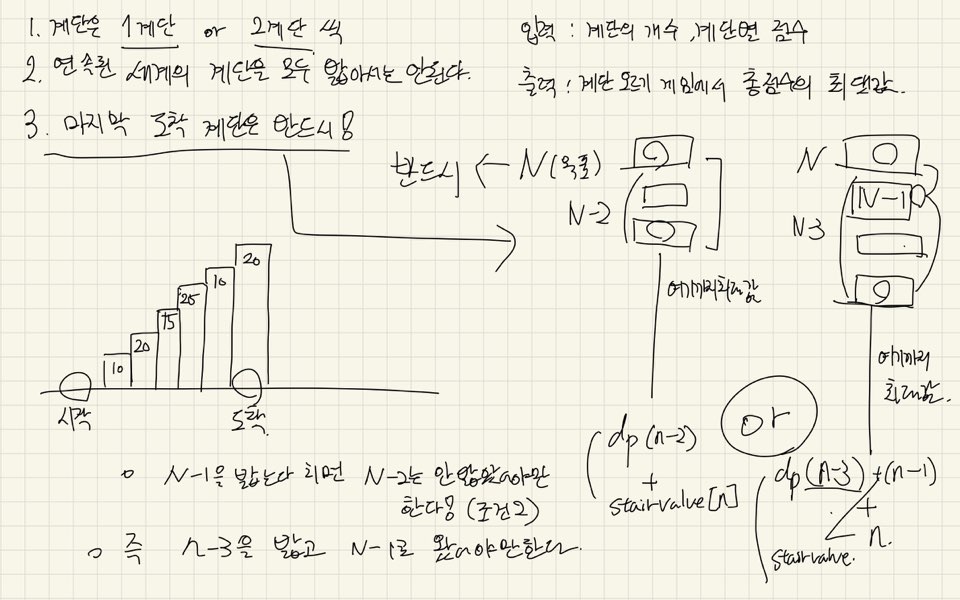 1. 계단은 1계단 or 2계단 씩
2. 연속된 세개의 계단을 모두 밟아서는 안된다.
3. 마지막 도착 계단은 반드시!
입력 : 계단의 개수, 계단별 점수
출력 : 계단 오르기 게임에서 총점수의 최댓값.
반드시 ← N(목표)
N-2
여기까지 최대값
dp(n-2)
+
stairvalue[n]
or
N
N-1
N-3
여기까지
최대값.
dp(n-3) + (n-1)
+
n.
stairvalue.
10
20
15
25
10
20
시작
도착.
o N-1을 밟는다 치면 N-2는 안 밟았어야만
한다! (조건2)
o 즉 n-3을 밟고 N-1로 왔어야만한다.